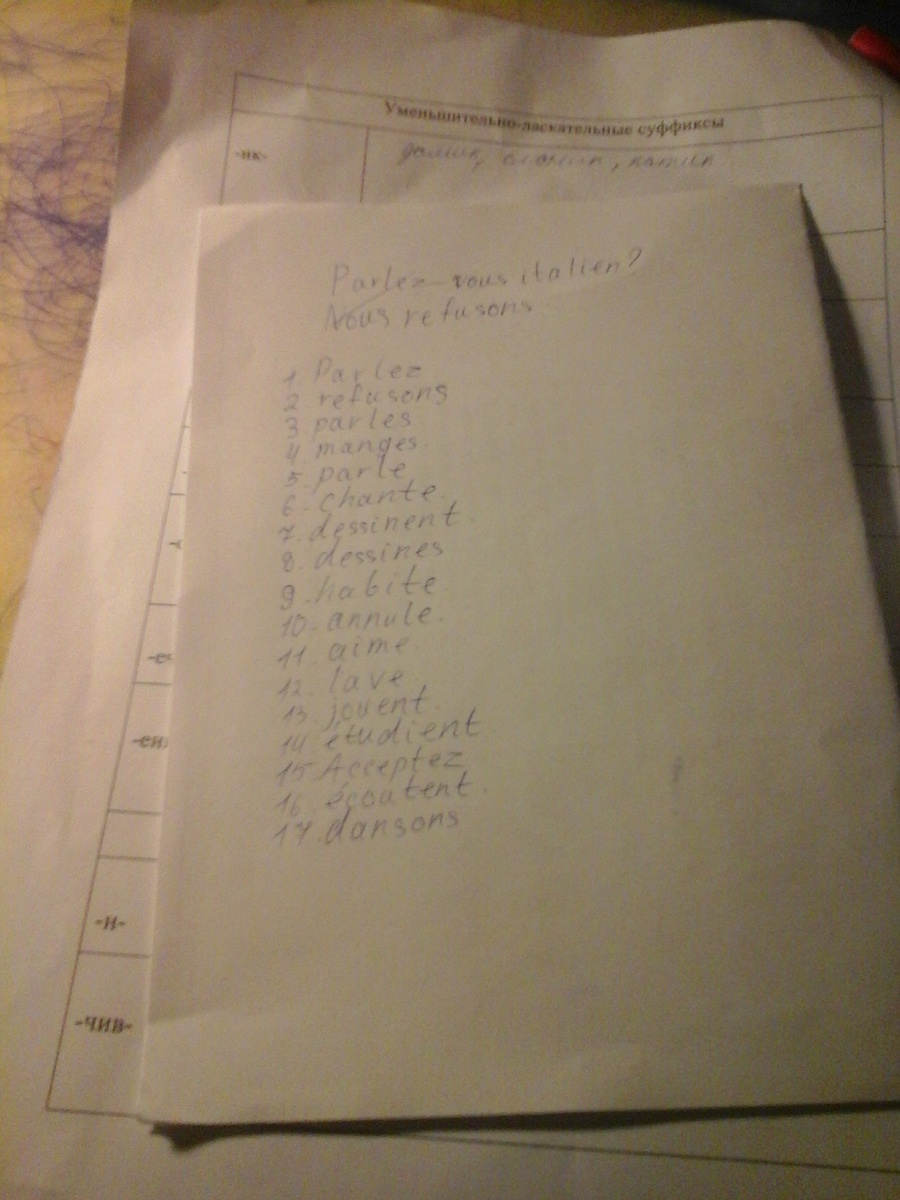 Уменьшительно-ласкательные суффиксы
-ик-
домик, слоник, котик
Parlez-vous italien?
Nous refusons
1. Parlez
2. refusons
3. parles
4. manges.
5. parle
6. chante.
7. dessinent.
8. dessines
9. habite
10. annule.
11. aime.
12. lave
13. jouent.
14. étudient
15. Acceptez
16. écoutent.
17. dansons
-ен
-и-
-чив-